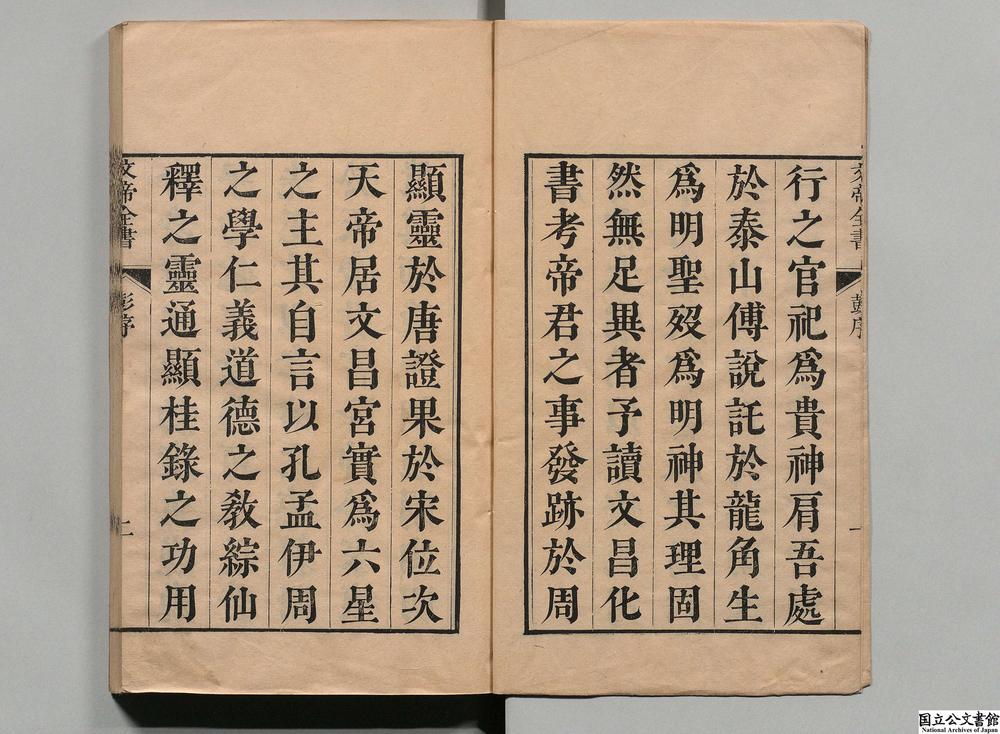 行之官祀爲貴神肩吾處
於泰山傅說託於龍角生
爲明聖歿爲明神其理固
然無足異者予讀文昌化
書考帝君之事發跡於周
顯靈於唐證果於宋位次
天帝居文昌宮實爲六星
之主其自言以孔孟伊周
之學仁義道德之敎綜仙
釋之靈通顯桂錄之功用
文帝全書 彭序 一
文帝全書 彭序 二
国立公文書館
National Archives of Japan